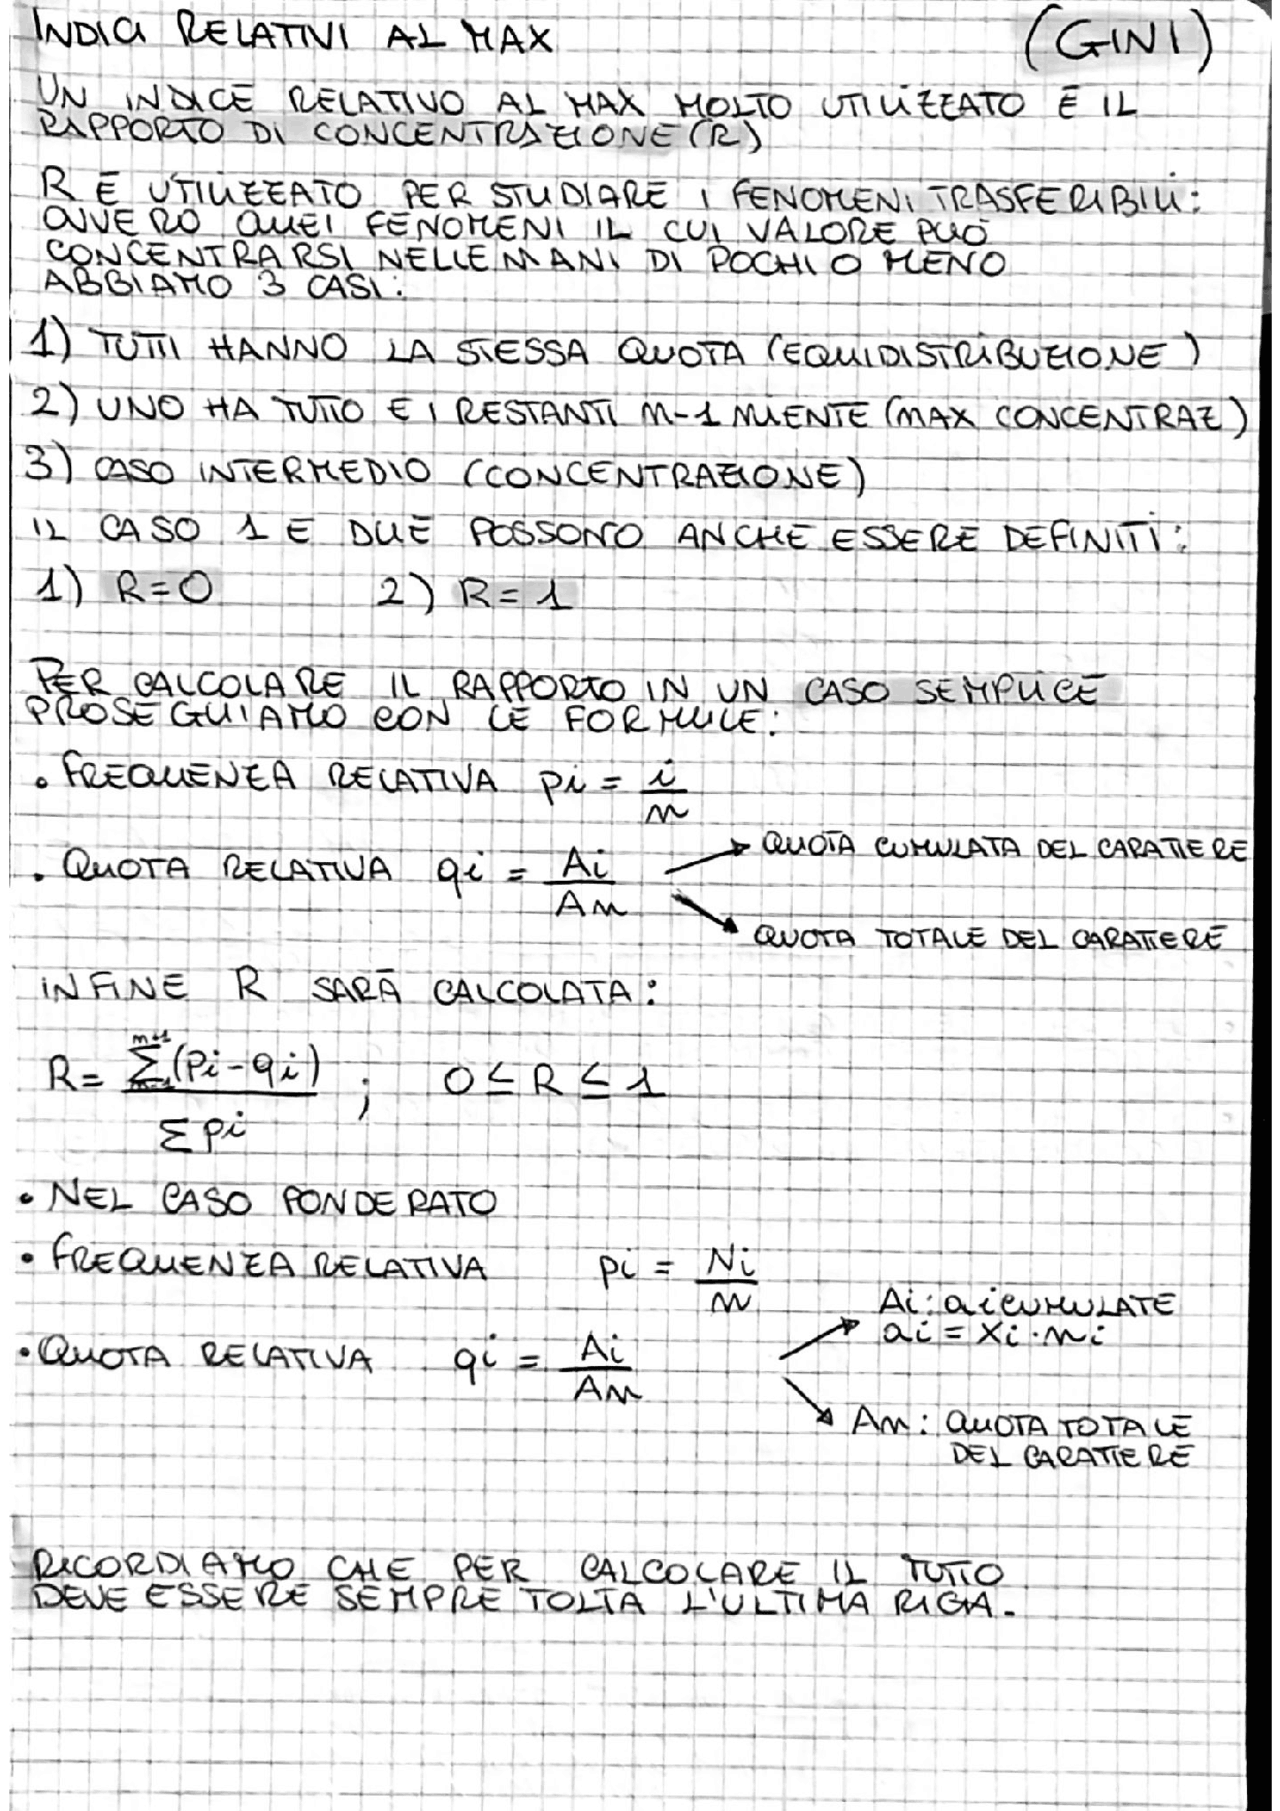 INDICI RELATIVI AL MAX (GINI)
UN INDICE RELATIVO AL MAX MOLTO UTILIZZATO È IL
RAPPORTO DI CONCENTRAZIONE (R)
R È UTILIZZATO PER STUDIARE I FENOMENI TRASFERIBILI:
OVVERO QUEI FENOMENI IL CUI VALORE PUÒ
CONCENTRARSI NELLE MANI DI POCHI O MENO
ABBIAMO 3 CASI:
1) TUTTI HANNO LA STESSA QUOTA (EQUIDISTRIBUZIONE)
2) UNO HA TUTTO E I RESTANTI n-1 NIENTE (MAX CONCENTRAZ)
3) CASO INTERMEDIO (CONCENTRAZIONE)
IL CASO 1 E DUE POSSONO ANCHE ESSERE DEFINITI:
1) R=0 2) R=1
PER CALCOLARE IL RAPPORTO IN UN CASO SEMPLICE
PROSEGUIAMO CON LE FORMULE:
• FREQUENZA RELATIVA pi = i/n
• QUOTA RELATIVA qi = Ai/An → QUOTA CUMULATA DEL CARATTERE
→ QUOTA TOTALE DEL CARATTERE
INFINE R SARÀ CALCOLATA:
R = Σ(Pi-qi) / Σpi ; 0 ≤ R ≤ 1
• NEL CASO PONDERATO
• FREQUENZA RELATIVA pi = Ni/n
• QUOTA RELATIVA qi = Ai/An → Ai: ai CUMULATE
ai = xi·ni
→ An: QUOTA TOTALE
DEL CARATTERE
RICORDIAMO CHE PER CALCOLARE IL TUTTO
DEVE ESSERE SEMPRE TOLTA L'ULTIMA RIGA.